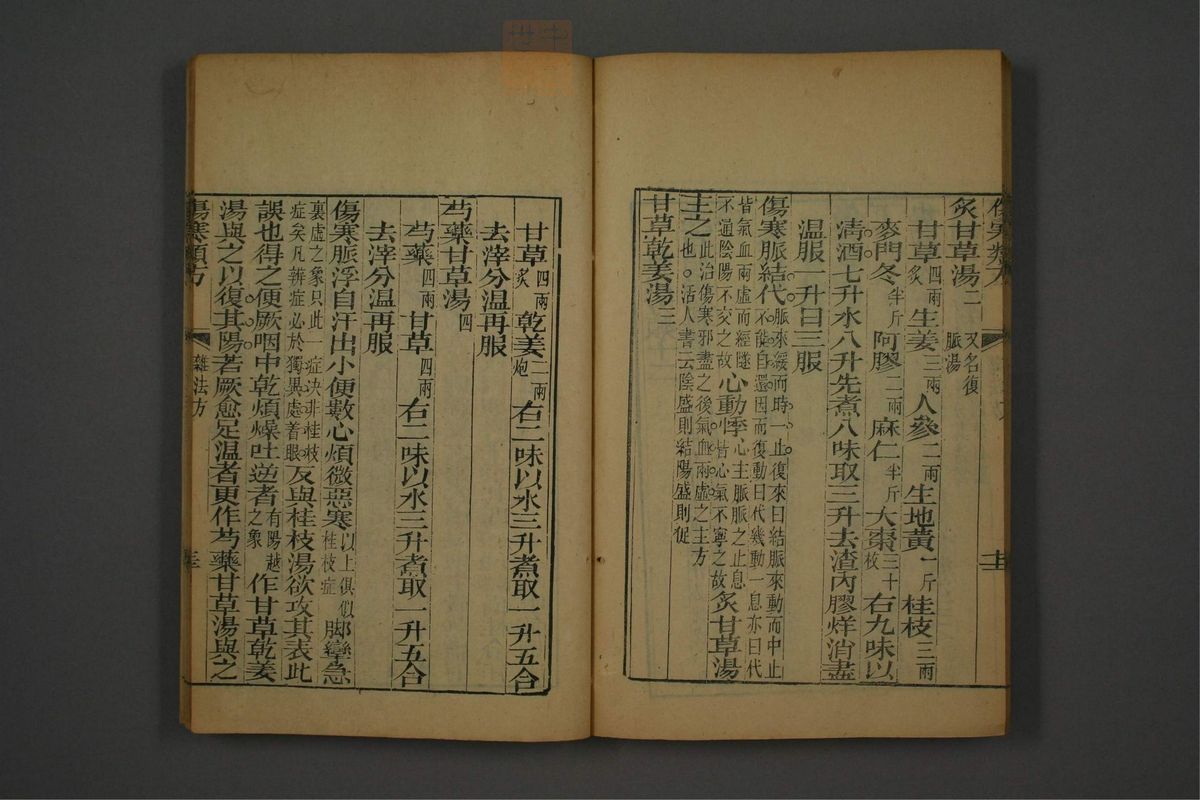 傷寒類方
炙甘草湯二 又名復脈湯
甘草四兩炙 生姜三兩 人參二兩 生地黃一斤 桂枝三兩
麥門冬半斤 阿膠二兩 麻仁半斤 大棗三十枚 右九味以
清酒七升水八升先煮八味取三升去渣內膠烊消盡
溫服一升日三服
傷寒脈結代脈來緩而時一止復來曰結脈來動而中止不能自還因而復動曰代幾動一息亦曰代
皆氣血兩虛而經隧不通陰陽不交之故心動悸心主脈脈之止息皆心氣不寧之故炙甘草湯
主之此治傷寒邪盡之後氣血兩虛之主方也。活人書云陰盛則結陽盛則促
甘草乾姜湯三
甘草四兩炙 乾姜二兩炮 右二味以水三升煮取一升五合
去滓分温再服
芍藥甘草湯四
芍藥四兩 甘草四兩 右二味以水三升煮取一升五合
去滓分温再服
傷寒脈浮自汗出小便數心煩微惡寒以上俱似桂枝症脚攣急
裏虛之象只此一症決非桂枝症矣凡辨症必於獨異處着眼反與桂枝湯欲攻其表此
誤也得之便厥咽中乾煩燥吐逆者有陽越之象作甘草乾姜
湯與之以復其陽若厥愈足温者更作芍藥甘草湯與之
傷寒類方 雜法方